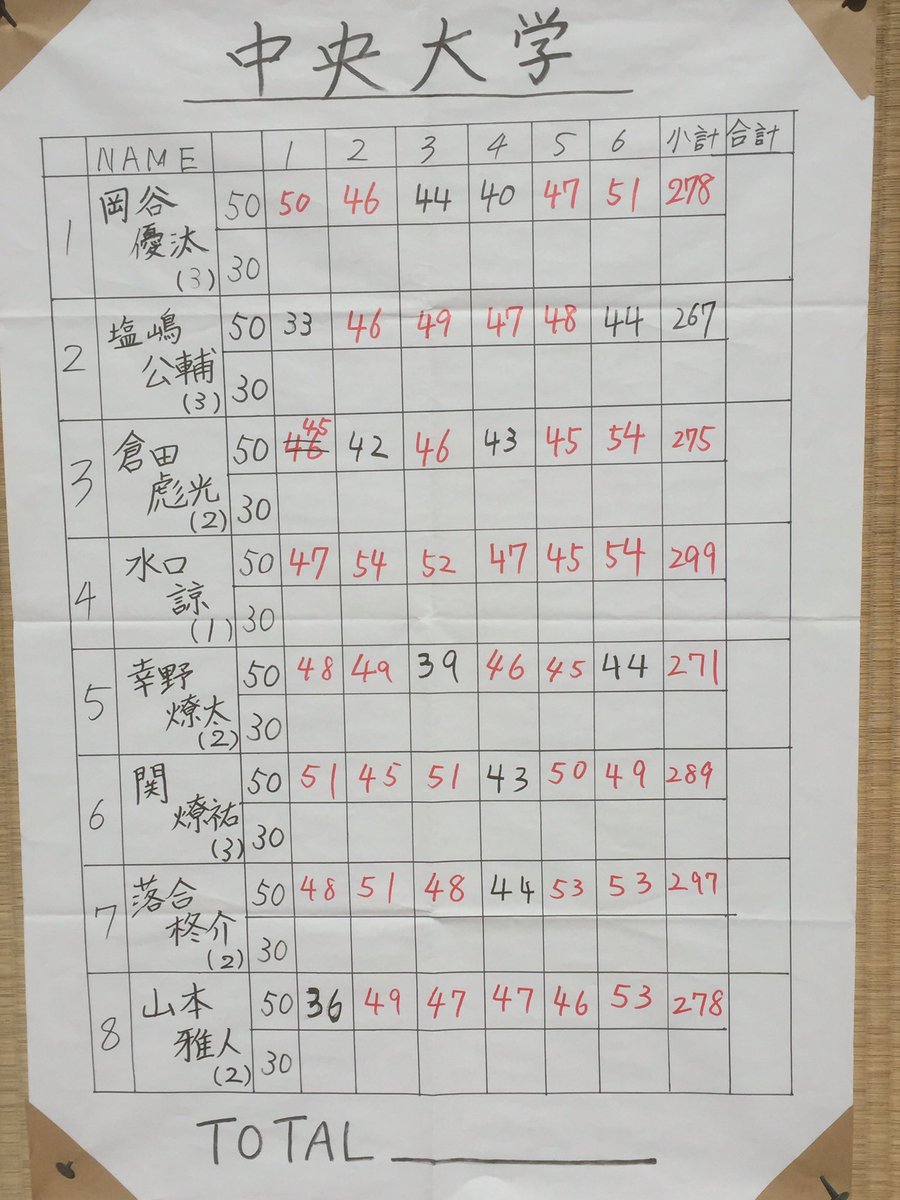 中央大学
NAME 1 2 3 4 5 6 小計 合計
1 岡谷 50 50 46 44 40 47 51 278
優汰
(3) 30
2 塩嶋 50 33 46 49 47 48 44 267
公輔
(3) 30
45
3 倉田 50 46 42 46 43 45 54 275
彪光
(2) 30
4 水口 50 47 54 52 47 45 54 299
諒
(1) 30
5 幸野 50 48 49 39 46 45 44 271
燎太
(2) 30
6 関 50 51 45 51 43 50 49 289
燎祐
(3) 30
7 落合 50 48 51 48 44 53 53 297
柊介
(2) 30
8 山本 50 36 49 47 47 46 53 278
雅人
(2) 30
TOTAL